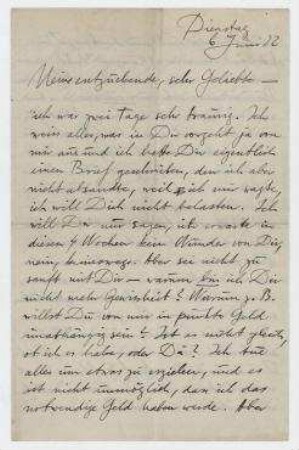 Dienstag
6 Juni 32
Meine entzückende, sehr Geliebte —
ich war zwei Tage sehr traurig. Ich
weiss alles, was in Dir vorgeht ja von
mir aus und ich hatte Dir eigentlich
einen Brief geschrieben, den ich aber
nicht absandte, weil ich mir sagte,
ich will Dich nicht belasten. Ich
will Dir nur sagen, ich erwarte in
diesen 4 Wochen kein Wunder von Dir,
nein, keineswegs. Aber sei nicht zu
sanft mit Dir — warum bin ich Dir
nicht mehr Gewissheit? Warum z. B.
willst Du von mir in punkto Geld
unabhängig sein? Ist es nicht gleich,
ob ich es habe, oder Du? Ich tue
alles um etwas zu erzielen, und es
ist nicht unmöglich, dass ich das
notwendige Geld haben werde. Aber